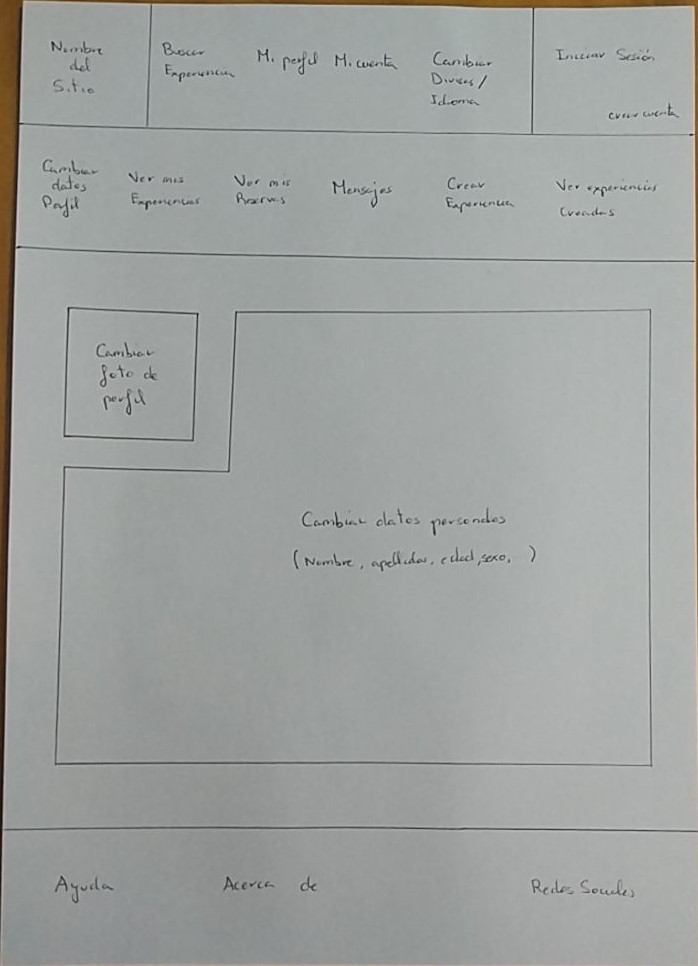 Nombre
del
Sitio
Buscar
Experiencia
Mi perfil
Mi cuenta
Cambiar
Divisas /
Idioma
Iniciar Sesión
crear cuenta
Cambiar
datos
Perfil
Ver mis
Experiencias
Ver mis
Reservas
Mensajes
Crear
Experiencia
Ver experiencias
Creadas
Cambiar
foto de
perfil
Cambiar datos personales
(Nombre, apellidos, edad, sexo, )
Ayuda
Acerca de
Redes Sociales